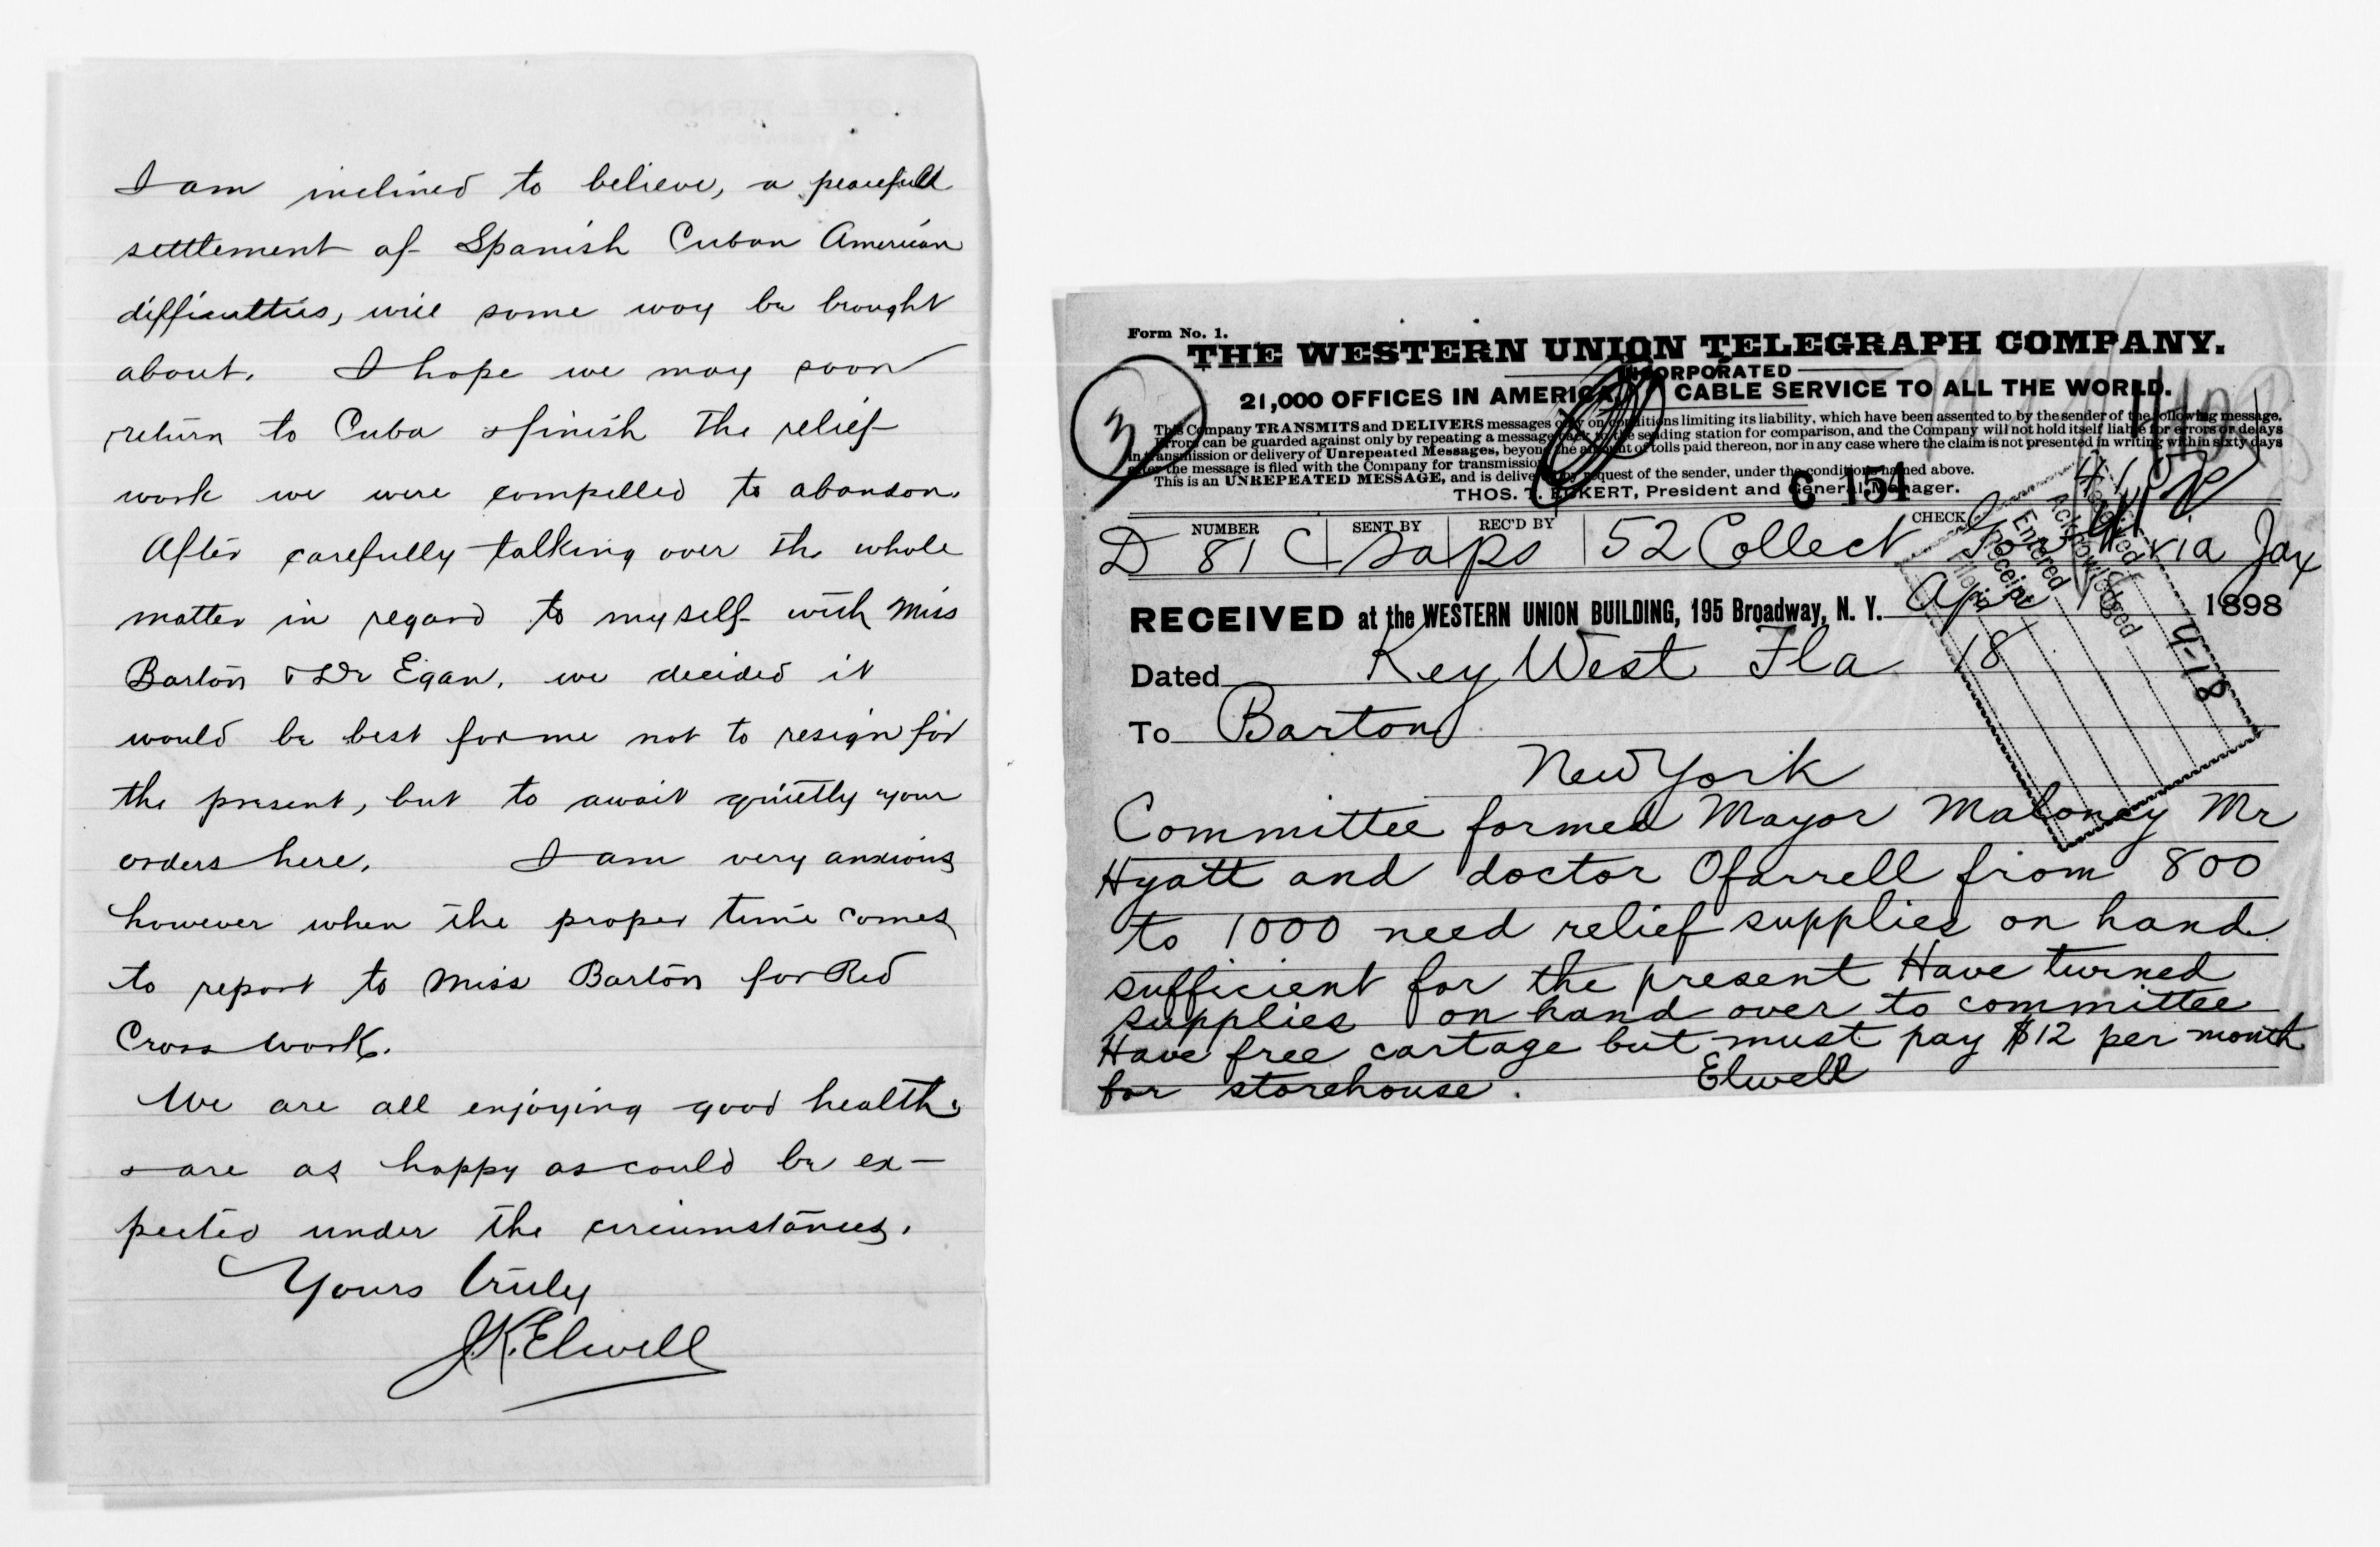 I am inclined to believe, a peacefull
settlement of Spanish Cuban American
difficulties, will some way be brought
about. I hope we may soon
return to Cuba & finish the relief
work we were compelled to abandon.
After carefully talking over the whole
matter in regard to myself with Miss
Barton & Dr Egan, we decided it
would be best for me not to resign for
the present, but to await quietly your
orders here. I am very anxious
however when the proper time comes
to report to Miss Barton for Red
Cross work.
We are all enjoying good health
& are as happy as could be ex-
pected under the circumstances.
Yours truly
J.K. Elwell
Form No. 1.
THE WESTERN UNION TELEGRAPH COMPANY.
INCORPORATED
21,000 OFFICES IN AMERICA. CABLE SERVICE TO ALL THE WORLD.
This Company TRANSMITS and DELIVERS messages only on conditions limiting its liability, which have been assented to by the sender of the following message.
Errors can be guarded against only by repeating a message back to the sending station for comparison, and the Company will not hold itself liable for errors or delays
in transmission or delivery of Unrepeated Messages, beyond the amount of tolls paid thereon, nor in any case where the claim is not presented in writing within sixty days
after the message is filed with the Company for transmission.
This is an UNREPEATED MESSAGE, and is delivered by request of the sender, under the conditions named above.
THOS. T. ECKERT, President and General Manager.
3
C 154
NUMBER SENT BY REC'D BY CHECK
D 81 C 52 Collect via Jax
RECEIVED at the WESTERN UNION BUILDING, 195 Broadway, N. Y. Apr 18 1898
Entered
Acknowledged
4-18
Dated Key West Fla 18
To Barton
New York
Committee formed Mayor Maloney Mr
Hyatt and doctor Ofarrell from 800
to 1000 need relief supplies on hand
sufficient for the present Have turned
supplies on hand over to committee
Have free cartage but must pay $12 per month
for storehouse. Elwell